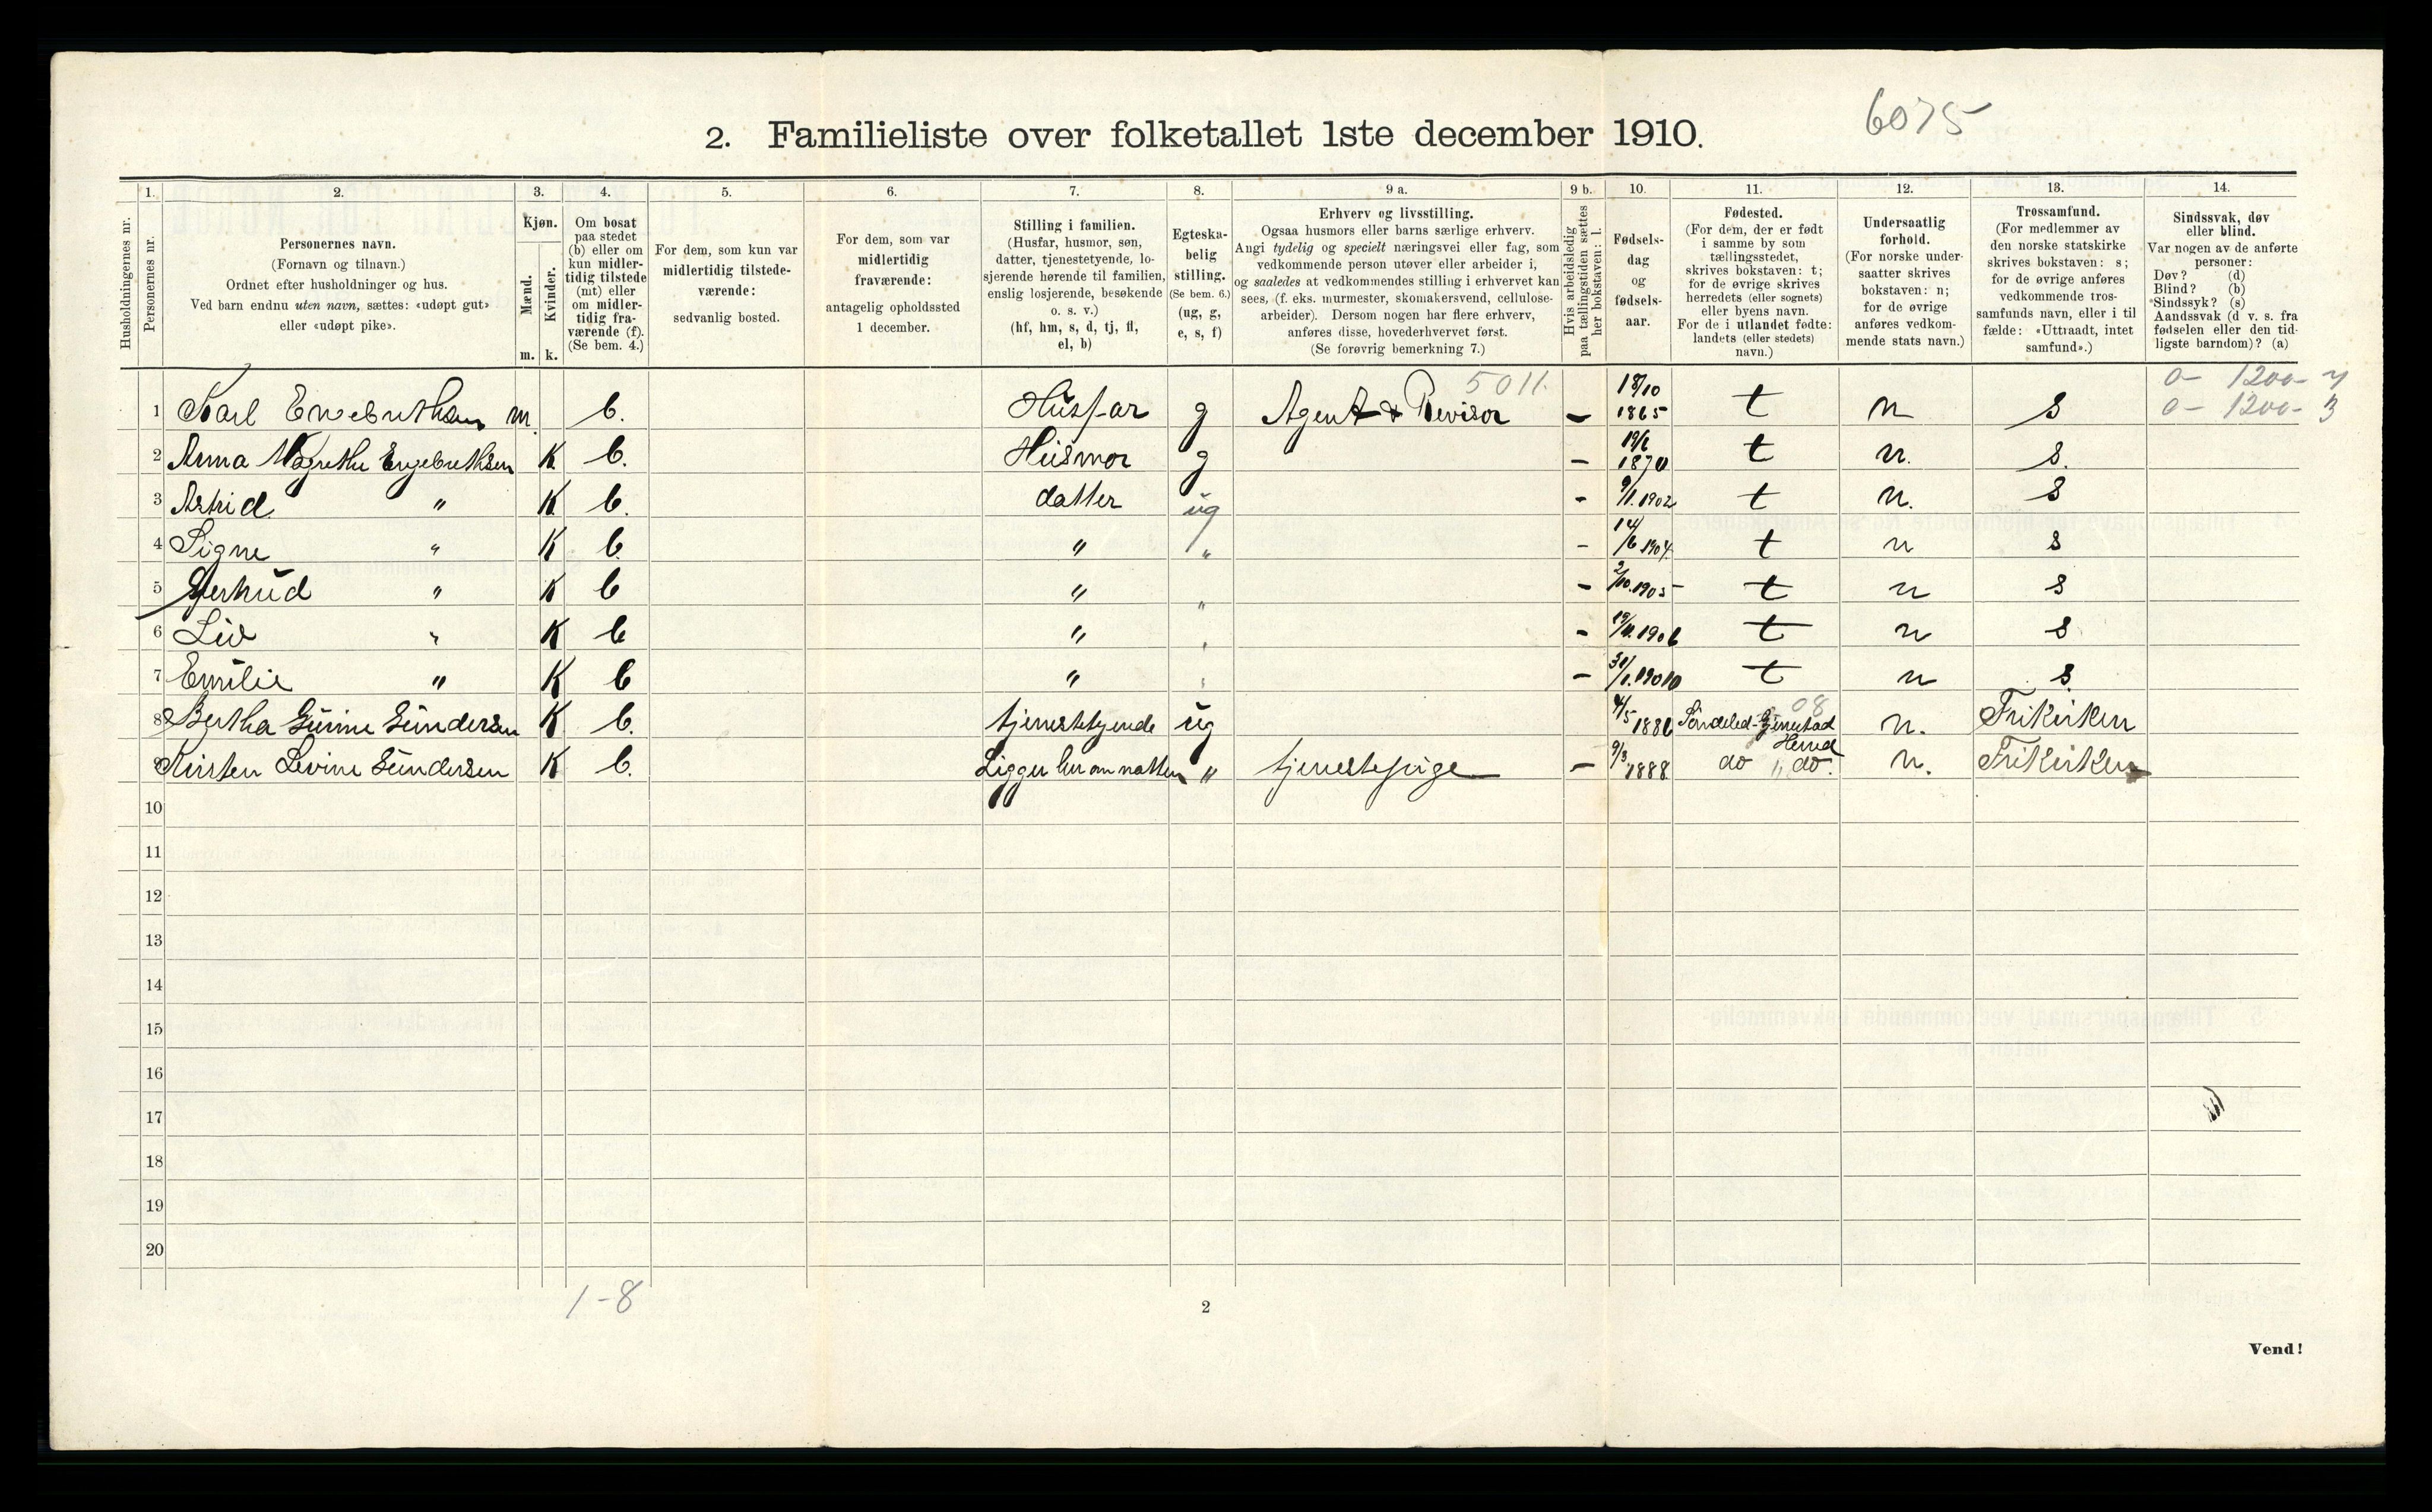 6075
2. Familieliste over folketallet 1ste december 1910.
Husholdningernes nr.
1.
Personernes nr.
2.
Personernes navn.
(Fornavn og tilnavn.)
Ordnet efter husholdninger og hus.
Ved barn endnu uten navn, sættes: «udøpt gut»
eller «udøpt pike».
3.
Kjøn.
Mænd.
Kvinder.
m. k.
4.
Om bosat
paa stedet
(b) eller om
kun midler-
tidig tilstede
(mt) eller
om midler-
tidig fra-
værende (f).
(Se bem. 4.)
5.
For dem, som kun var
midlertidig tilstede-
værende:
sedvanlig bosted.
6.
For dem, som var
midlertidig
fraværende:
antagelig opholdssted
1 december.
7.
Stilling i familien.
(Husfar, husmor, søn,
datter, tjenestetyende, lo-
sjerende hørende til familien,
enslig losjerende, besøkende
o. s. v.)
(hf, hm, s, d, tj, fl,
el, b)
8.
Egteska-
belig
stilling.
(Se bem. 6.)
(ug, g,
e, s, f)
9 a.
Erhverv og livsstilling.
Ogsaa husmors eller barns særlige erhverv.
Angi tydelig og specielt næringsvei eller fag, som
vedkommende person utøver eller arbeider i,
og saaledes at vedkommendes stilling i erhvervet kan
sees, (f. eks. murmester, skomakersvend, cellulose-
arbeider). Dersom nogen har flere erhverv,
anføres disse, hovederhvervet først.
(Se forøvrig bemerkning 7.)
9 b.
Hvis arbeidsledig
paa tællingstiden sættes
her bokstaven: l.
10.
Fødsels-
dag
og
fødsels-
aar.
11.
Fødested.
(For dem, der er født
i samme by som
tællingsstedet,
skrives bokstaven: t;
for de øvrige skrives
herredets (eller sognets)
eller byens navn.
For de i utlandet fødte:
landets (eller stedets)
navn.)
12.
Undersaatlig
forhold.
(For norske under-
saatter skrives
bokstaven: n;
for de øvrige
anføres vedkom-
mende stats navn.)
13.
Trossamfund.
(For medlemmer av
den norske statskirke
skrives bokstaven: s;
for de øvrige anføres
vedkommende tros-
samfunds navn, eller i til
fælde: «Uttraadt, intet
samfund».)
14.
Sindssvak, døv
eller blind.
Var nogen av de anførte
personer:
Døv? (d)
Blind? (b)
Sindssyk? (s)
Aandssvak (d v. s. fra
fødselen eller den tid-
ligste barndom)? (a)
5011. 0- 1200- 4
0- 1200- 3
1 Karl Engebrethsen m. b. Husfar g Agent & Revisor - 18/10 1865 t n s
2 Anna Magrethe Engebrethsen K b. Husmor g - 19/6 1870 t n. s.
3 Astrid " K b. datter ug - 9/1.1902 t n. s
4 Signe " K b. " " - 14/6 1904 t n s
5 Gertrud " K b " " - 2/10.1905 t n s
6 Liv " K b " " - 19/11.1906 t n s
7 Emilie " K b " " - 31/1.1910 t n s.
8 Bertha Gurine Gundersen K b. tjenestetyende ug 4/5 1886 Søndeled-Gjerrestad Herred 08 n. Frikirken
9 Kirsten Levine Gundersen K b. Ligger her om natten " tjenestepige - 9/3 1888 do " do. n. Frikirken
10
11
12
13
14
15
16
17
18
19
20
1-8
2
Vend!